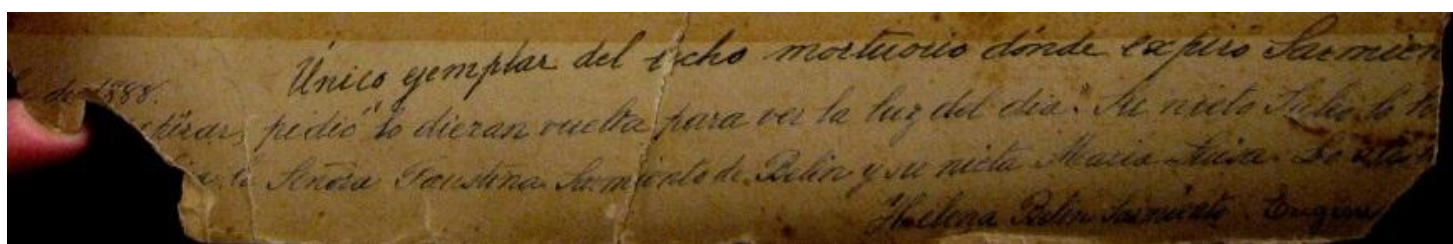 Único ejemplar del lecho mortuorio dónde expiró Sarmien
de 1888.
expirar, pidió "lo dieran vuelta para ver la luz del día". Su nieto Julio lo
la Señora Faustina Sarmiento de Belin y su nieta Maria Luisa. Lo
Helena Belin Sarmiento Eugen